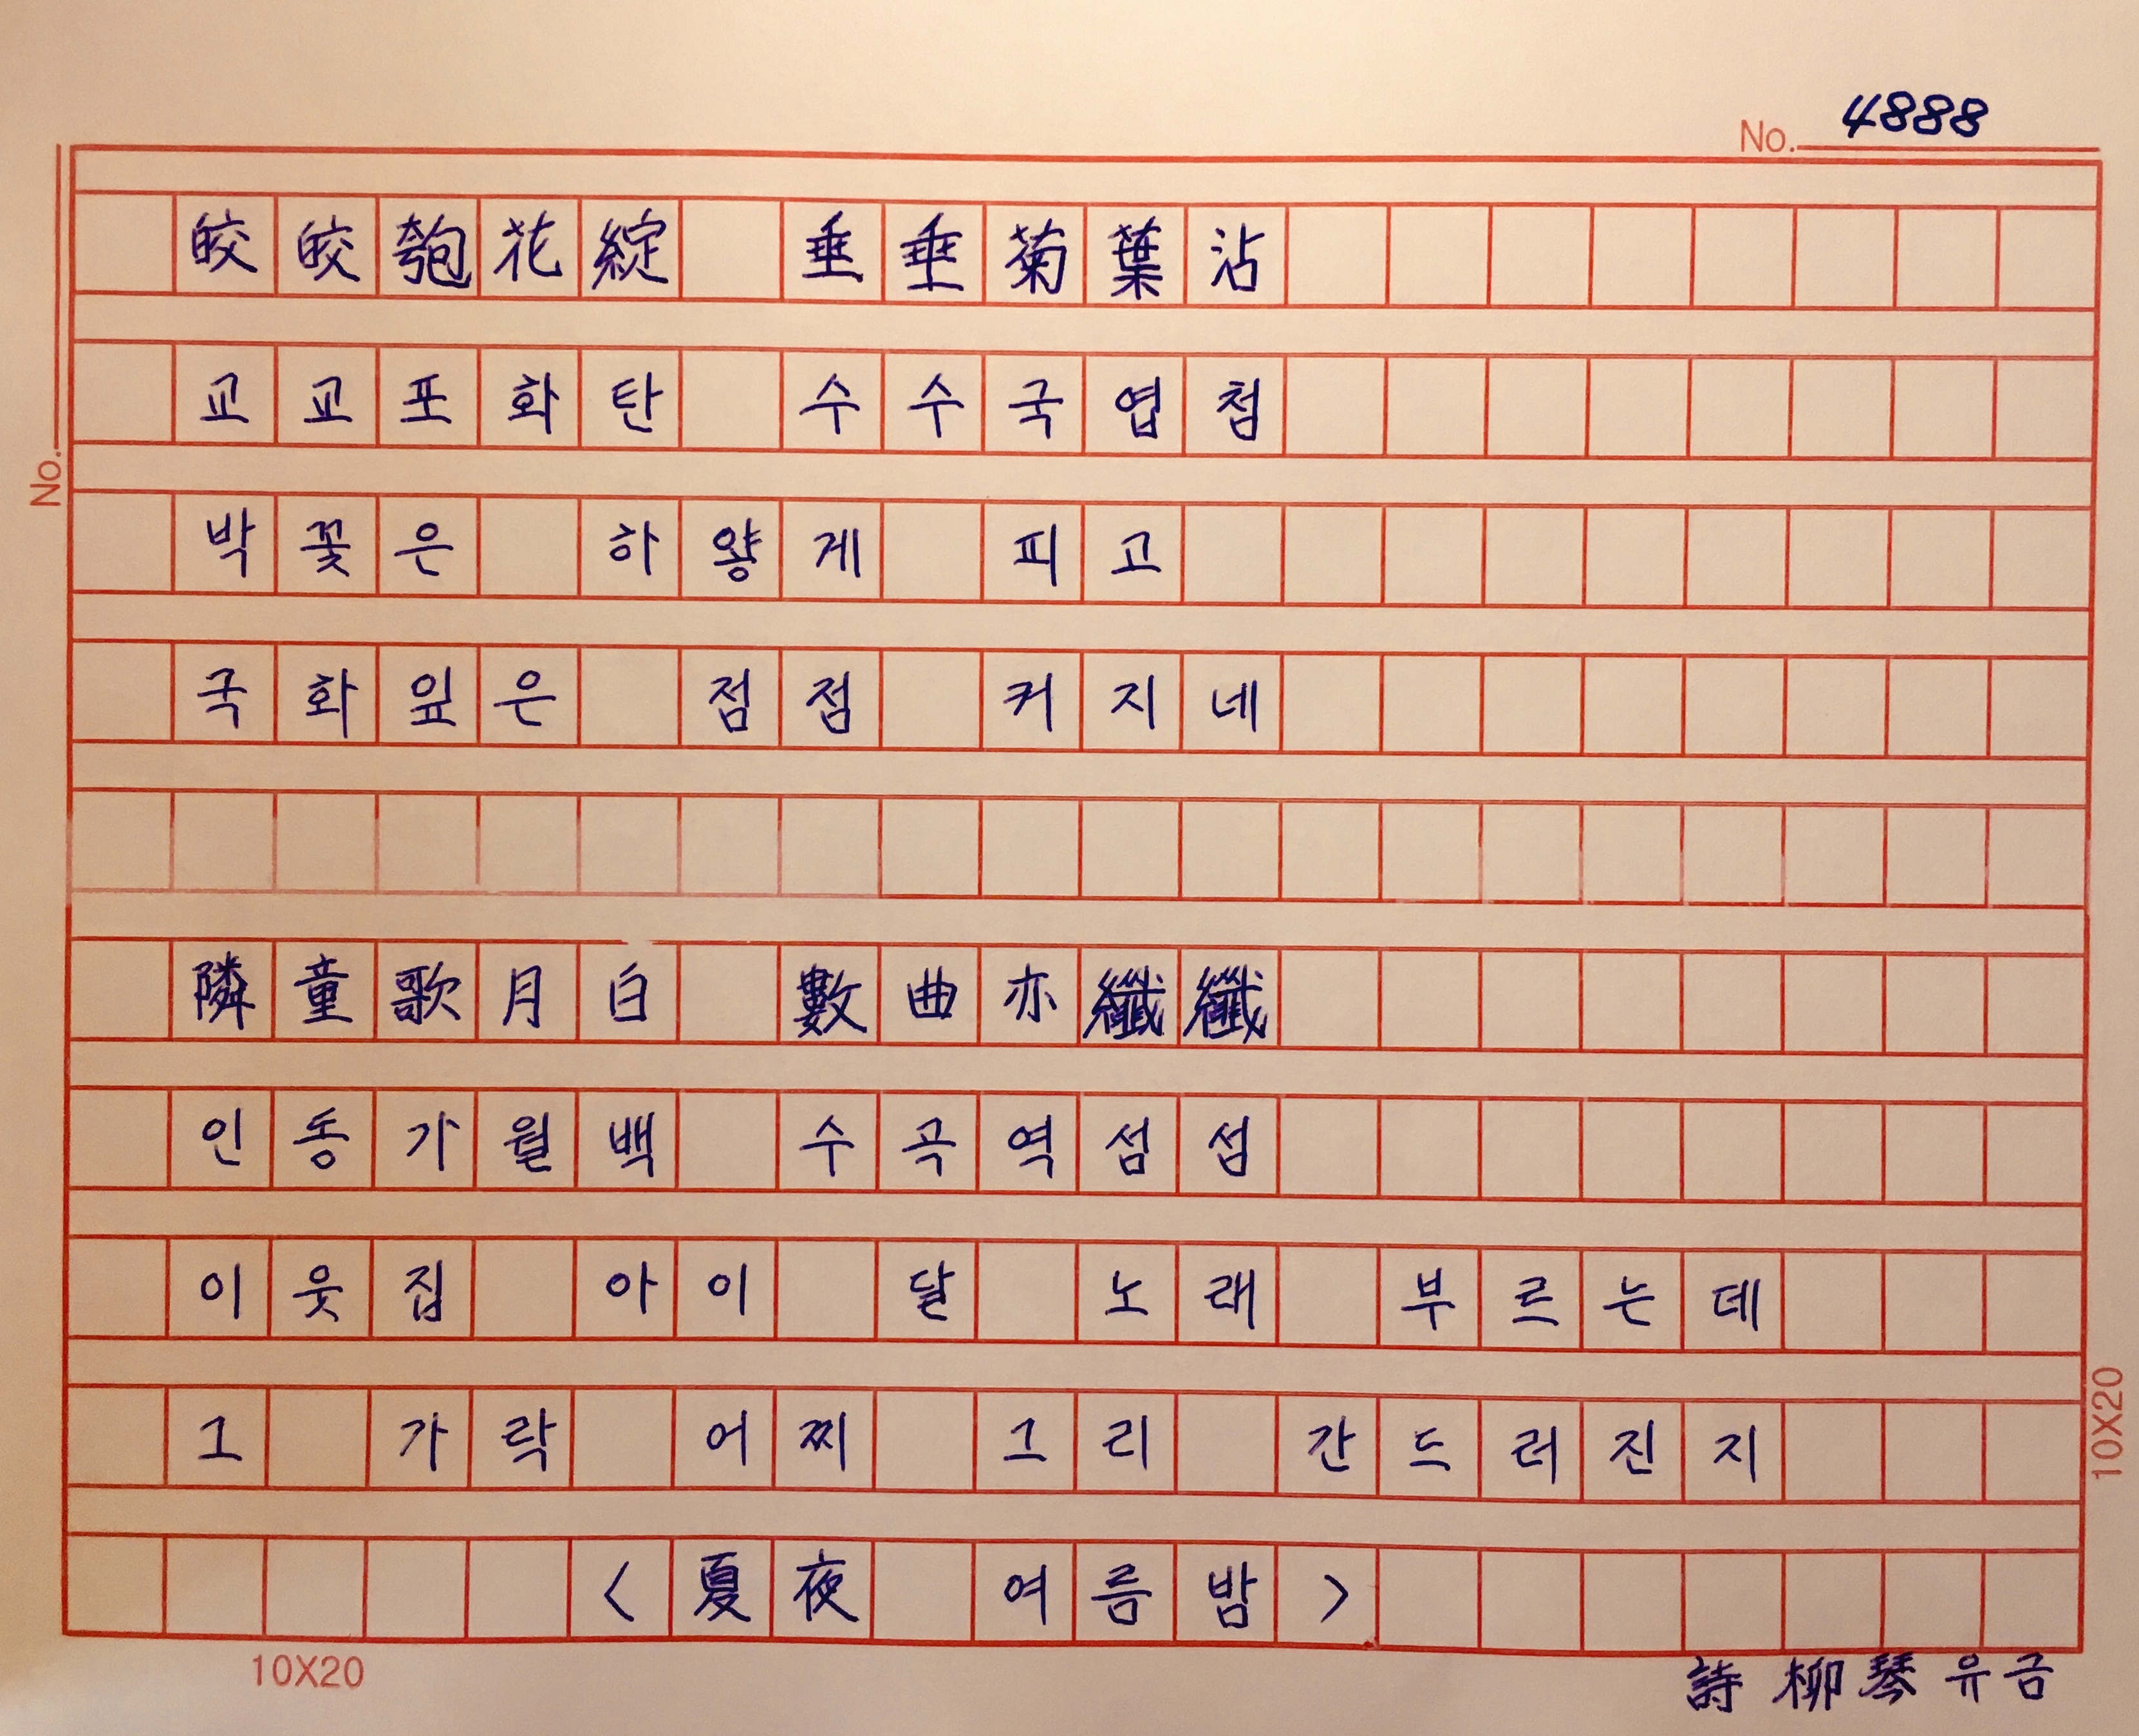 No. 4888
皎皎匏花綻 垂垂菊葉沾
교교포화탄 수수국엽첨
박꽃은 하얗게 피고
No.
국화잎은 점점 커지네
隣童歌月白 數曲亦纖纖
인동가월백 수곡역섬섬
이웃집 아이 달 노래 부르는데
그 가락 어찌 그리 간드러진지
10X20
<夏夜 여름밤>
10X20
詩 柳琴 유금